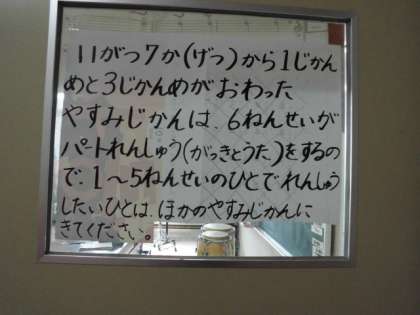 11がつ7か(げつ)から1じかん
めと3じかんめがおわった
やすみじかんは、6ねんせいが
パートれんしゅう(がっきとうた)をするの
で、1～5ねんせいのひとでれんしゅう
したいひとは、ほかのやすみじかんに
きてください。